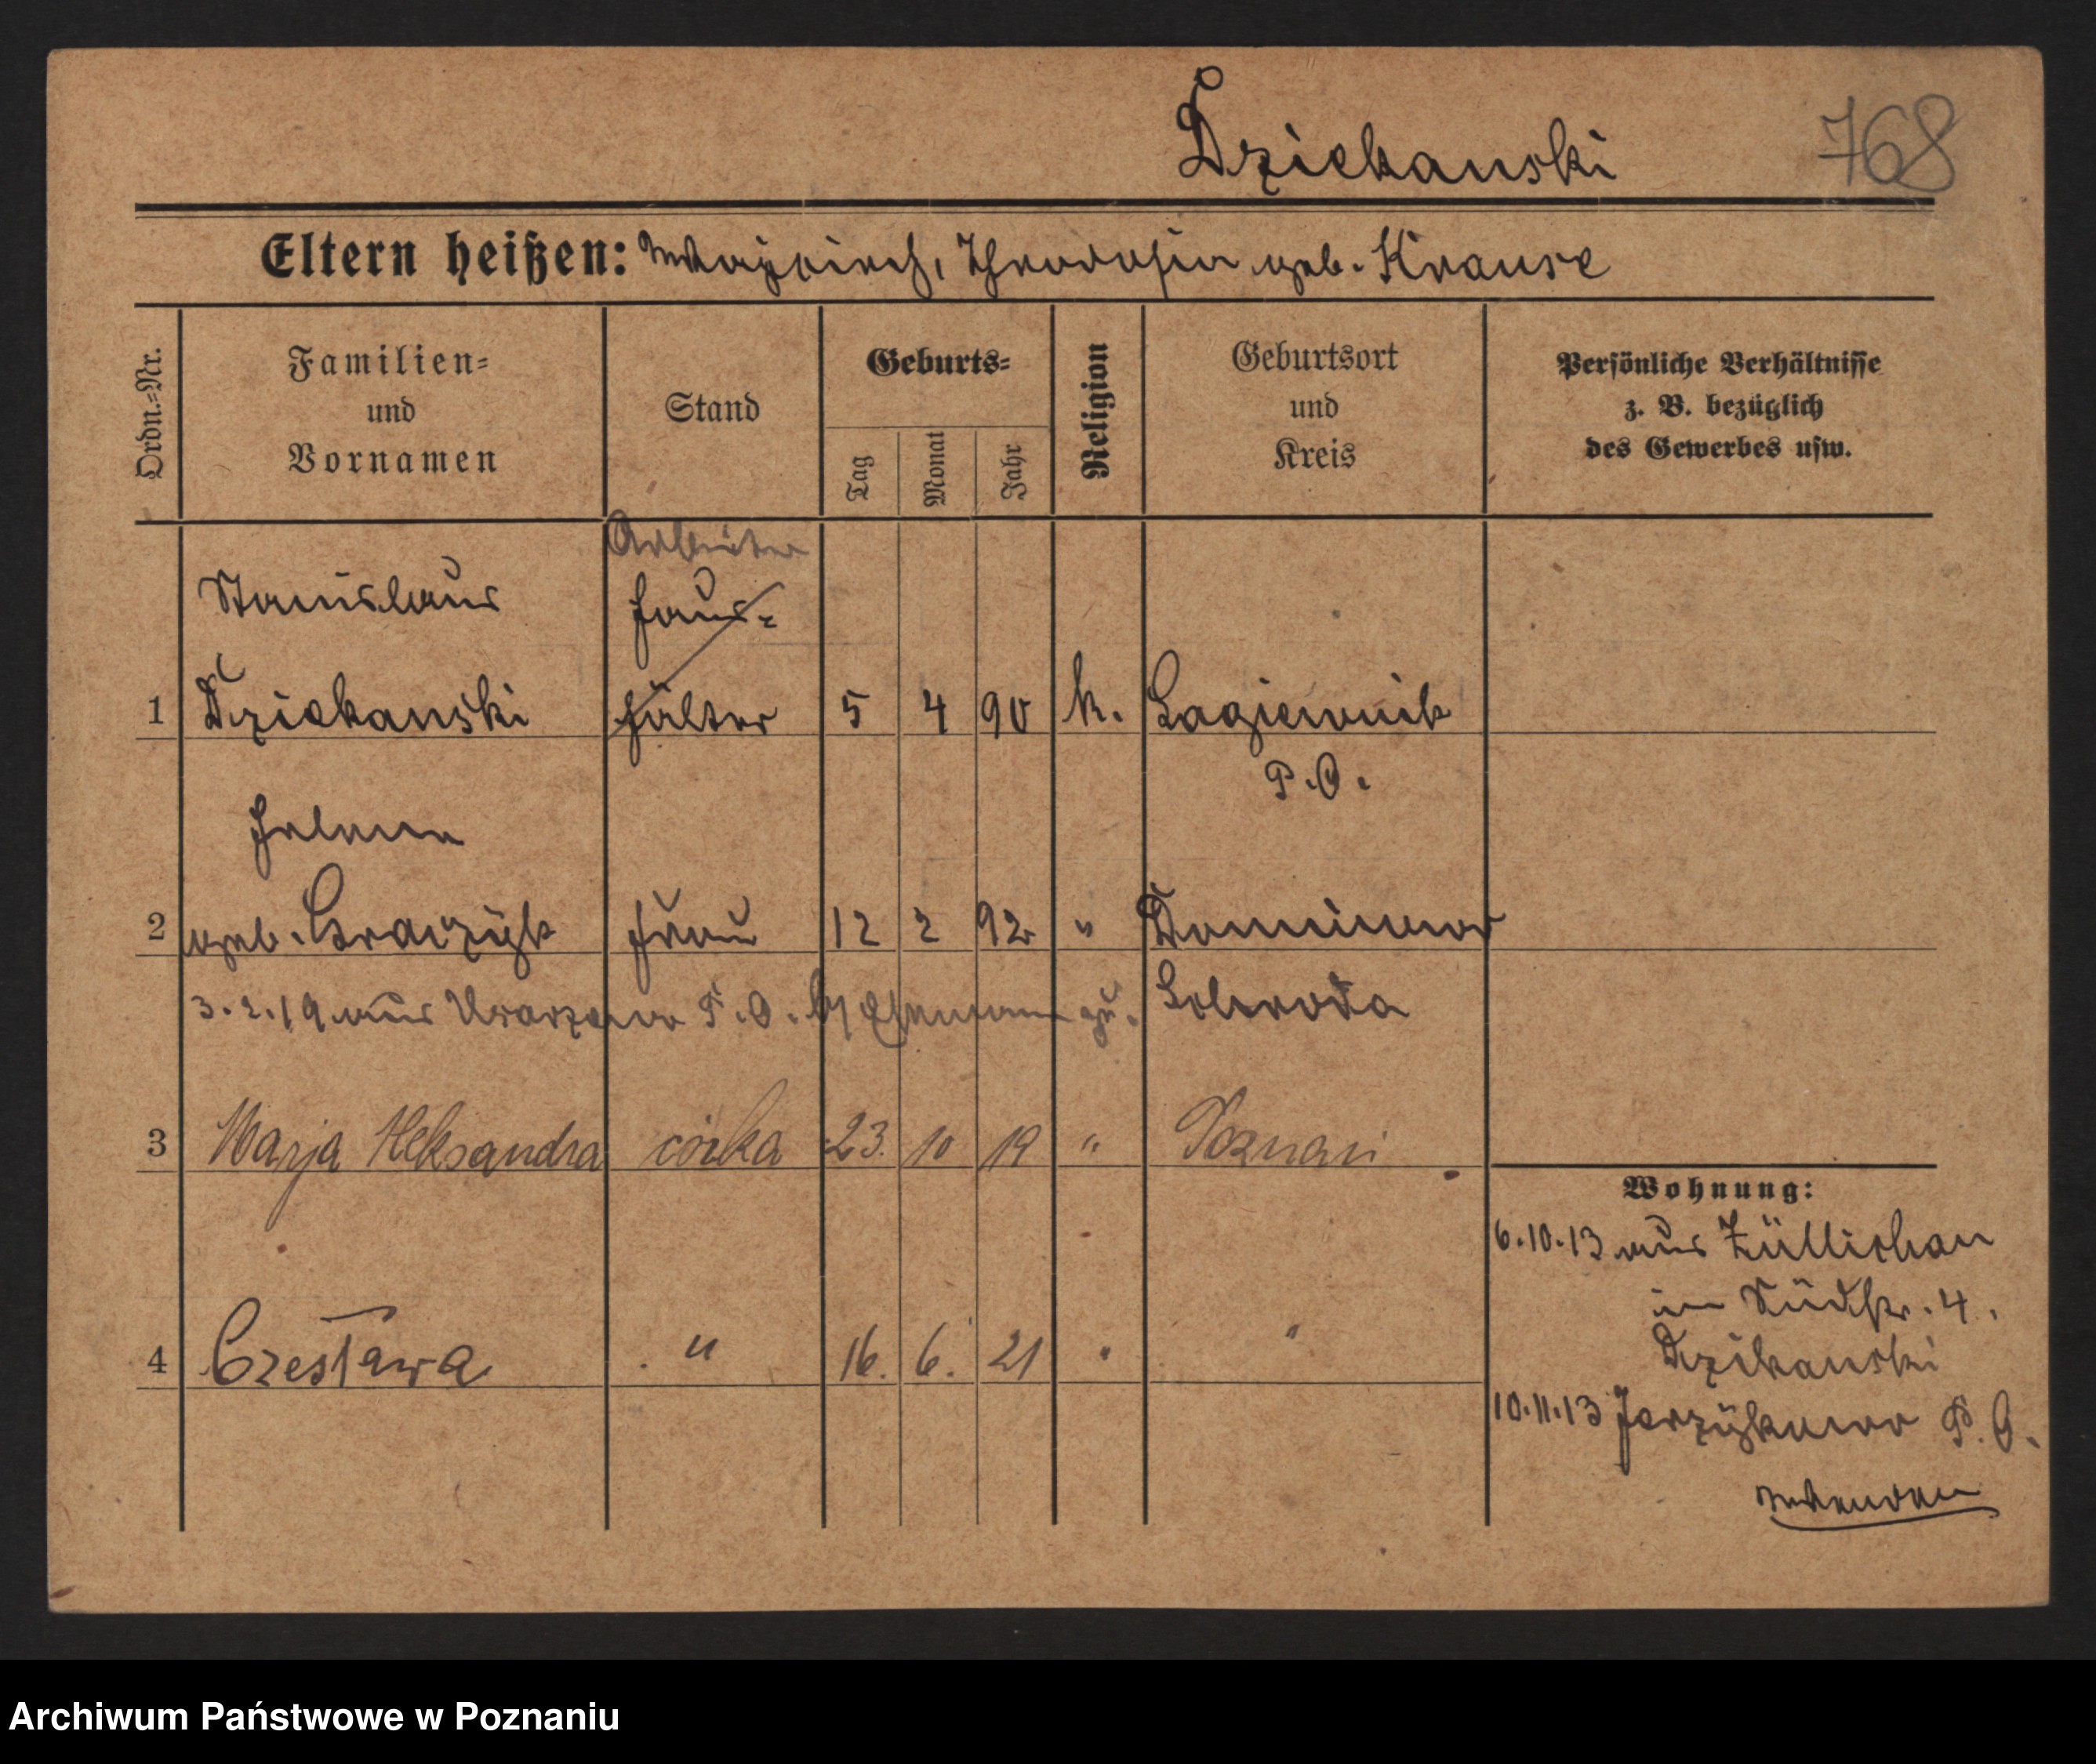 Dziekanski 768
Eltern heißen: Woyciech, Theodosia geb. Krause
Ordn.-Nr.
Familien-
und
Vornamen
Stand
Geburts-
Tag
Monat
Jahr
Religion
Geburtsort
und
Kreis
Persönliche Verhältnisse
z. B. bezüglich
des Gewerbes usw.
Arbeiter
Stanislaus Haus-
1 Dziekanski hälter 5 4 90 k. Lagiewnik
P. O.
Helena
2 geb. Graczyk Frau 12 2 92 " Dominowo
3.2.19 aus P. O. Ehemann zu. Schroda
3 Marja Aleksandra córka 23. 10 19 " Poznań
4 Czesława " 16. 6. 21 " "
Wohnung:
6.10.13 aus Züllichau
in Südstr. 4.
Dzikanski
10.11.13 Jerzykowo P. O.
Archiwum Państwowe w Poznaniu